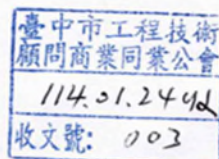 臺中市工程技術
顧問商業同業公會
114.01.24
收文號: 003